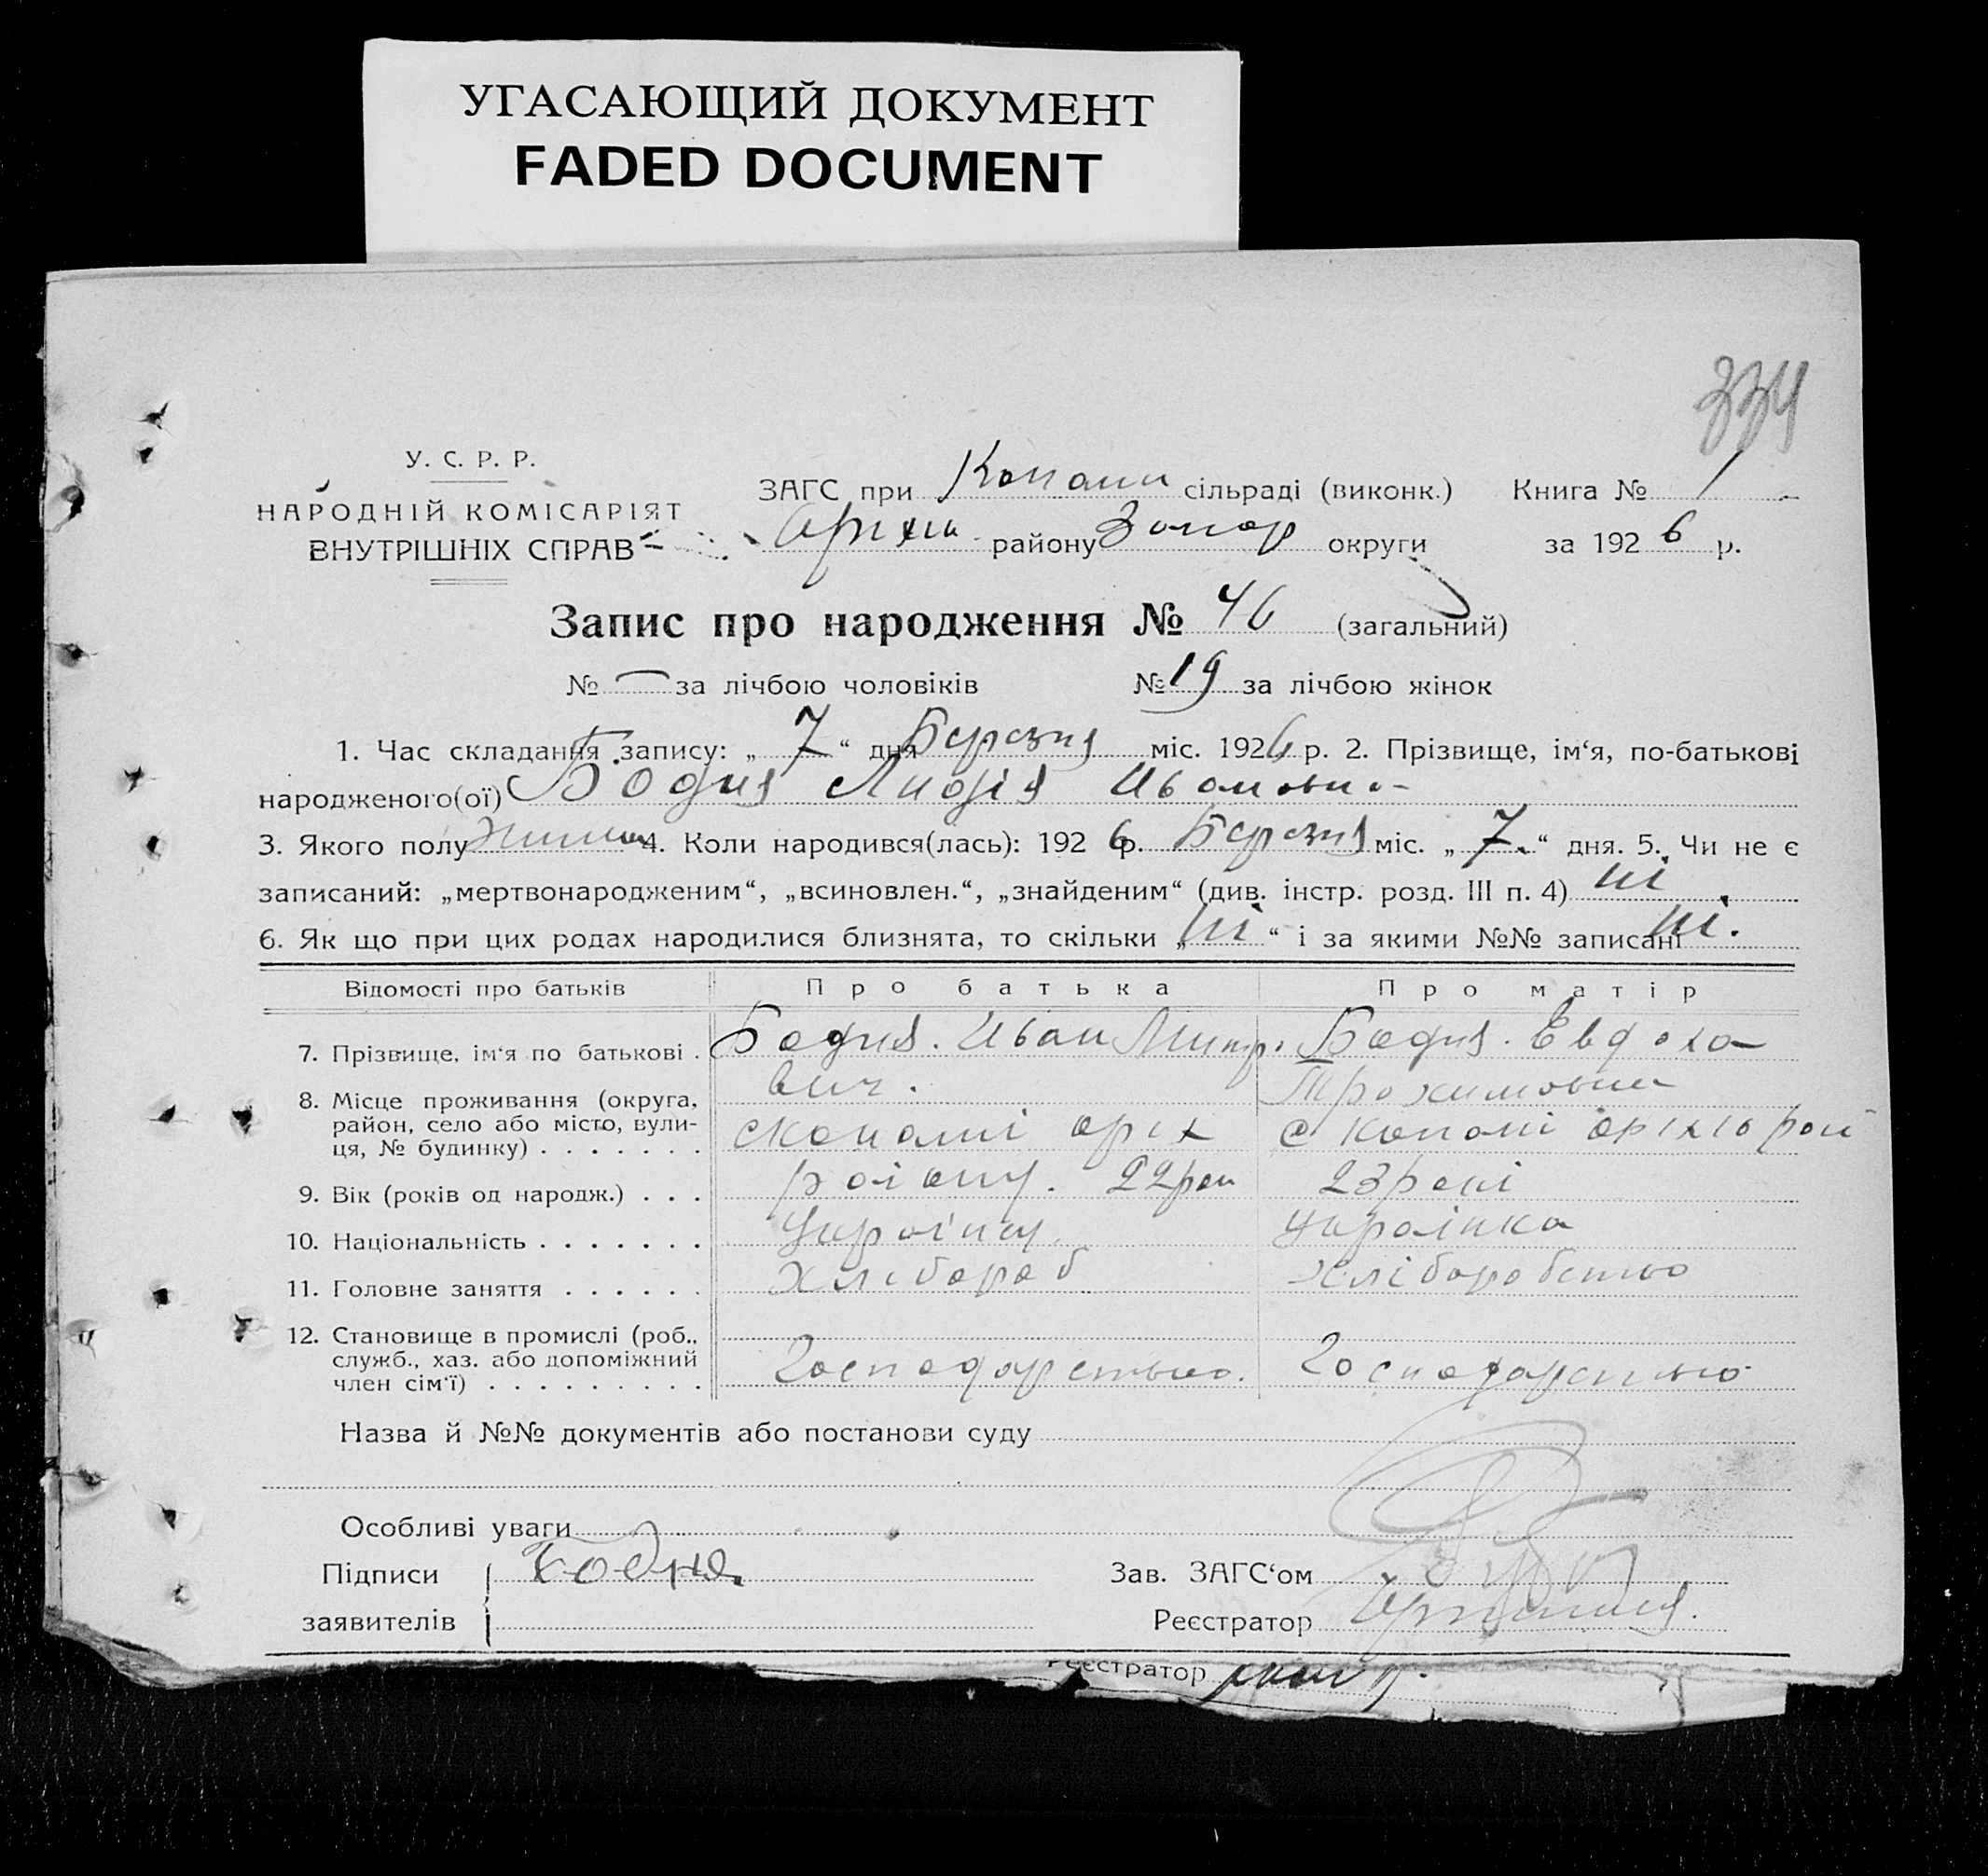 УГАСАЮЩИЙ ДОКУМЕНТ
FADED DOCUMENT
334
У. С. Р. Р.
НАРОДНІЙ КОМІСАРІЯТ
ВНУТРІШНІХ СПРАВ
ЗАГС при Копани сільраді (виконк.) Книга № 1
Оріхів району Запор округи за 1926 р.
Запис про народження № 46 (загальний)
№ — за лічбою чоловіків № 19 за лічбою жінок
1. Час складання запису: „ 7 “ дня Березня міс. 1926 р. 2. Прізвище, ім‘я, по-батькові
народженого(ої) Бодня Лидія Ивановна
3. Якого полу 4. Коли народився(лась): 192 6 р. Березня міс. „ 7. “ дня. 5. Чи не є
записаний: „мертвонародженим“, „всиновлен.“, „знайденим“ (див. інстр. розд. III п. 4) ні
6. Як що при цих родах народилися близнята, то скільки „ ні “ і за якими №№ записані ні.
Відомості про батьків Про батька Про матір
7. Прізвище, ім‘я по батькові . Бодня. Иван Митр. Бодня. Евдоха
вич. Трохимовна
8. Місце проживання (округа,
район, село або місто, вули-
ця, № будинку) . . . . . . . с Копані оріх с Копані оріхів рай
9. Вік (років од народж.) . . . раіону. 22 рок 23 рокі
10. Національність . . . . . . . Украінец Украінка
11. Головне заняття . . . . . . хлібороб хліборобство
12. Становище в промислі (роб.,
служб., хаз. або допоміжний
член сім‘ї) . . . . . . . . . Господарство. Господарство
Назва й №№ документів або постанови суду
Особливі уваги
Підписи Бодня
заявителів
Зав. ЗАГС‘ом
Реєстратор
Реєстратор